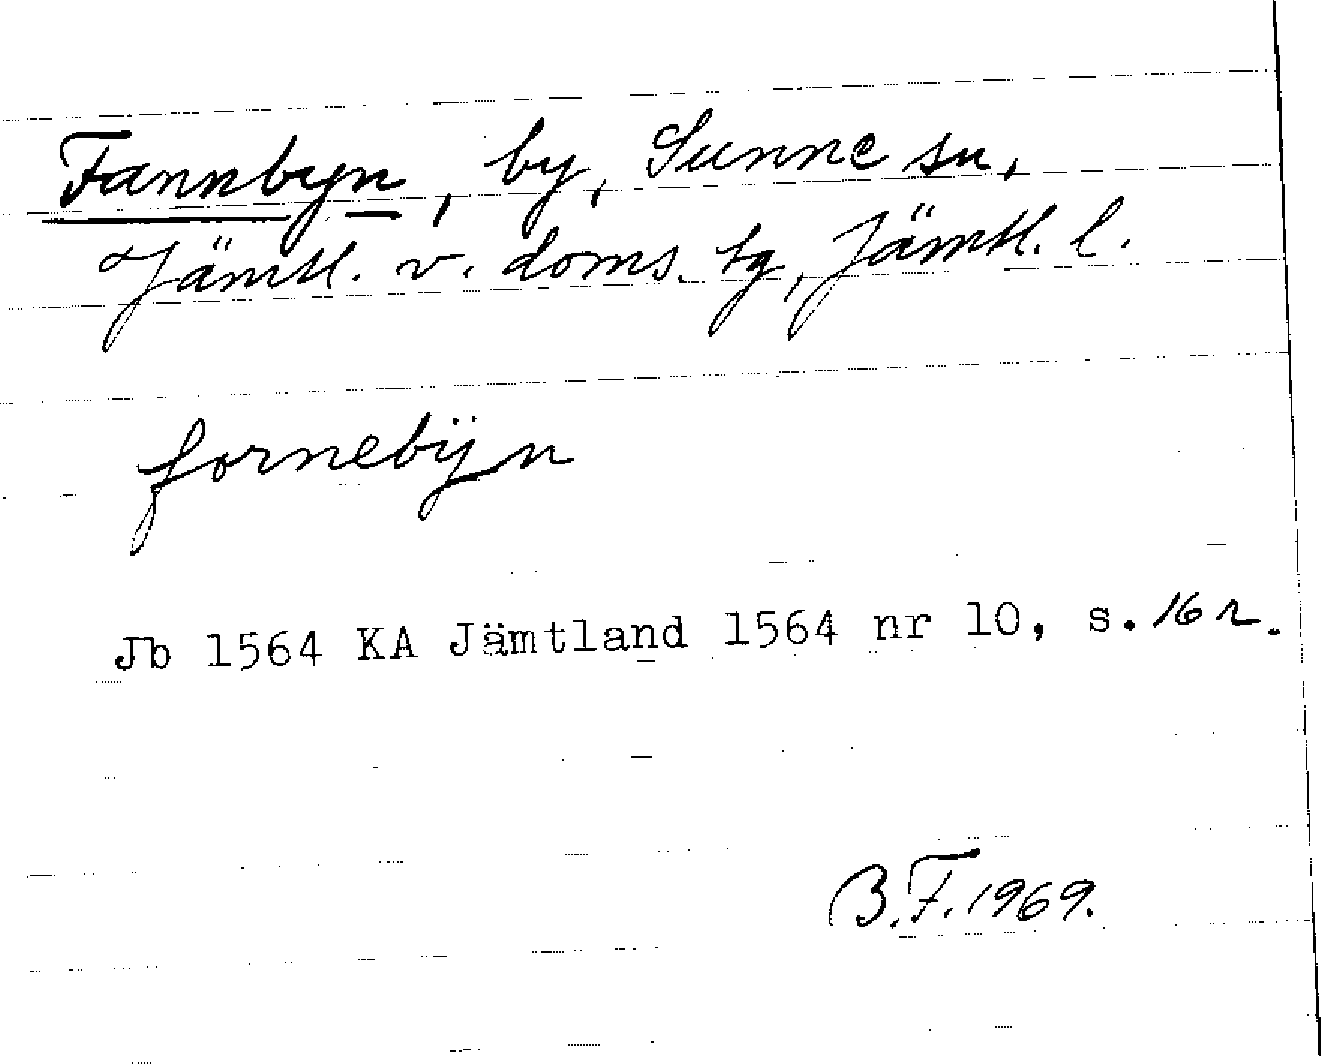 Fannbyn, by, Sunne sn,
Jämtl. v. doms. tg, Jämtl. l.
fornebÿn
Jb 1564 KA Jämtland 1564 nr 10, s. 16 r.
B.F. 1969.